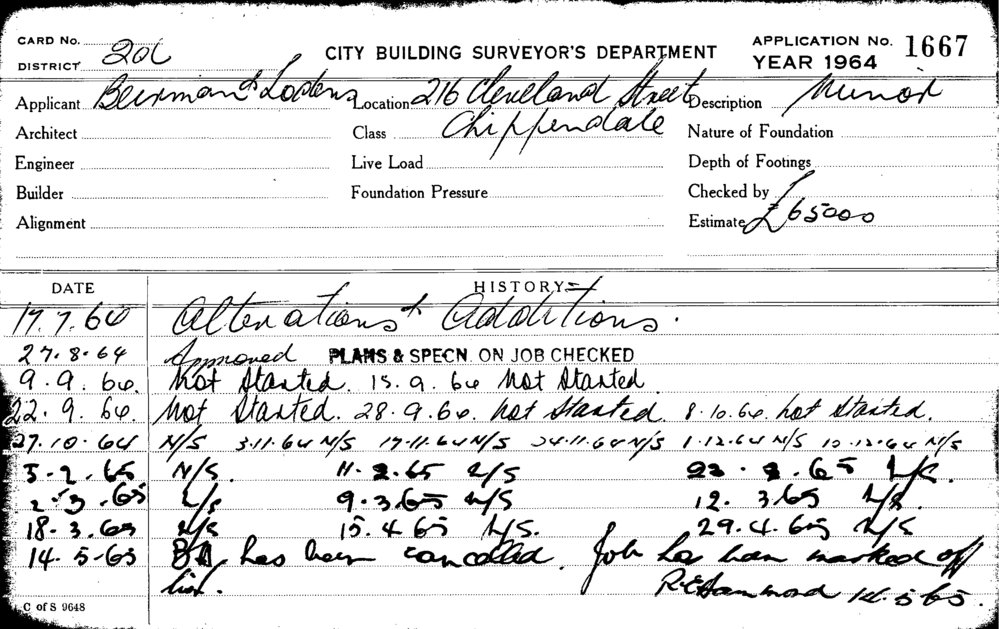 CARD No.
DISTRICT 20c
CITY BUILDING SURVEYOR'S DEPARTMENT
APPLICATION No. 1667
YEAR 1964
Applicant Location 216 Cleveland Street Description Minor
Architect Class Chippendale Nature of Foundation
Engineer Live Load Depth of Footings
Builder Foundation Pressure Checked by
Alignment Estimate £65000
DATE HISTORY
17.7.64 Alterations & Additions.
27.8.64 Approved PLANS & SPECN. ON JOB CHECKED
9.9.64. Not Started. 15.9.64 Not Started
22.9.64. Not Started. 28.9.64. Not Started. 8.10.64. Not Started.
27.10.64 N/S 3.11.64 N/S 17.11.64 N/S 24.11.64 N/S 1.12.64 N/S 10.12.64 N/S
5.2.65 N/S. 11.2.65 N/S 23.2.65 N/S.
2.3.65 N/S 9.3.65 N/S 12.3.65 N/S.
18.3.65 N/S 15.4.65 N/S. 29.4.65 N/S
14.5.65 BA has been cancelled. Job has been marked off
list. R.E. Hammond 14.5.65.
C of S 9648